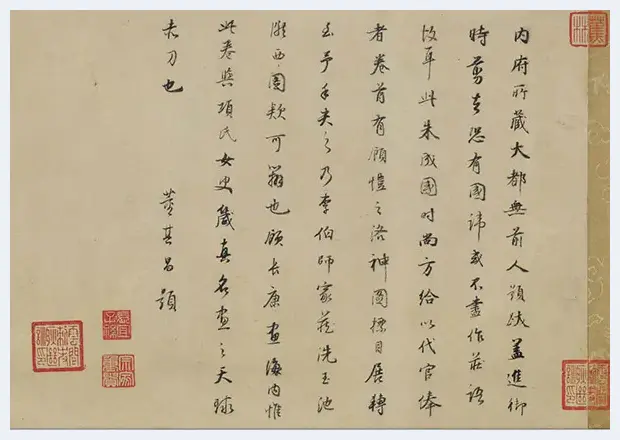 内府所藏大都無前人題跋蓋進御
時剪去恐有國諱或不盡作莊語
故耳此朱成國時尚方給以代官俸
者卷首有顧愷之洛神圖標目展轉
至予手之乃李伯師家藏洗玉池
西圖款可辨也顧長康畫海内惟
此卷與項氏女史箴真名畫之天球
赤刀也
董其昌題